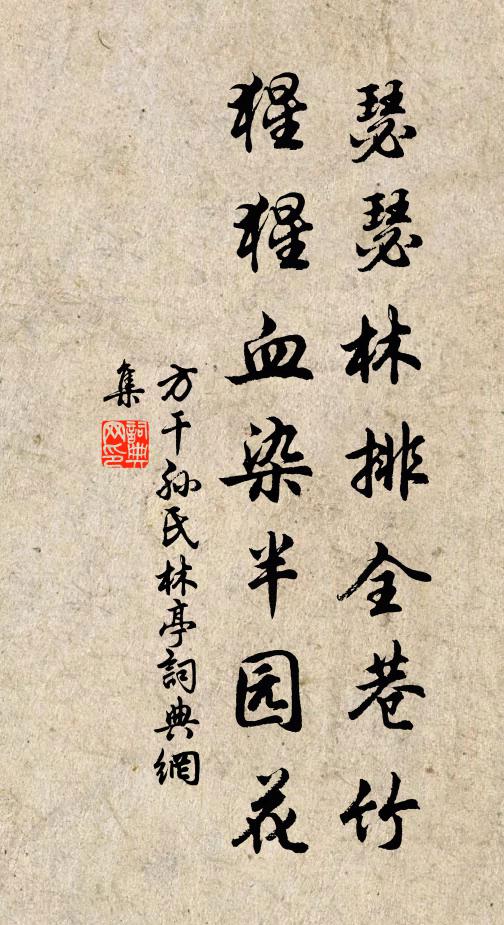 瑟瑟林排全巷竹
猩猩血染半园花
方干孙氏林亭詞典網
集
詞典
网印